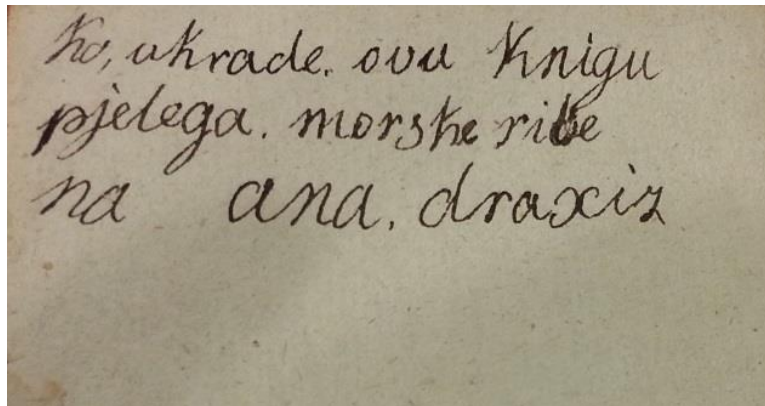 ko, ukrade. ovu knigu
pjelega. morske ribe
na ana. draxiz